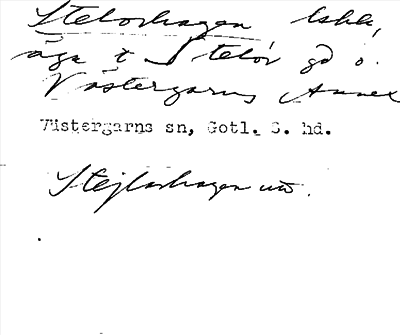 Stelorhagen lskh,
äga t Stelor gd o.
Västergarns Annex
Västergarns sn, Gotl. S. hd.
Stejlorhagen utt.